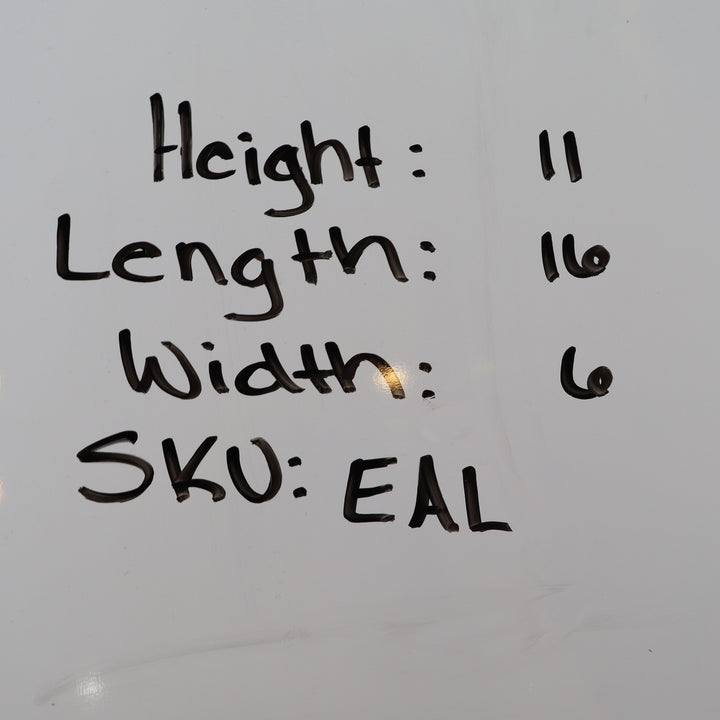 Height: 11
Length: 16
Width: 6
SKU: EAL